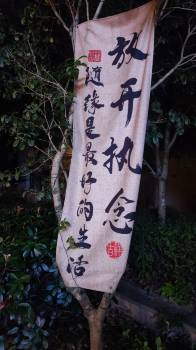 放开执念
随缘是最好的生活